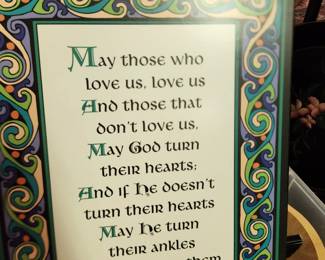 May those who
love us, love us
And those that
don't love us,
May God turn
their hearts;
And if He doesn't
turn their hearts
May He turn
their ankles
them